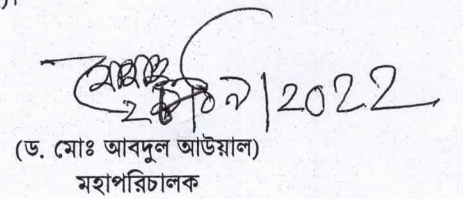 2022
(ড. মোঃ আবদুল আউয়াল)
মহাপরিচালক